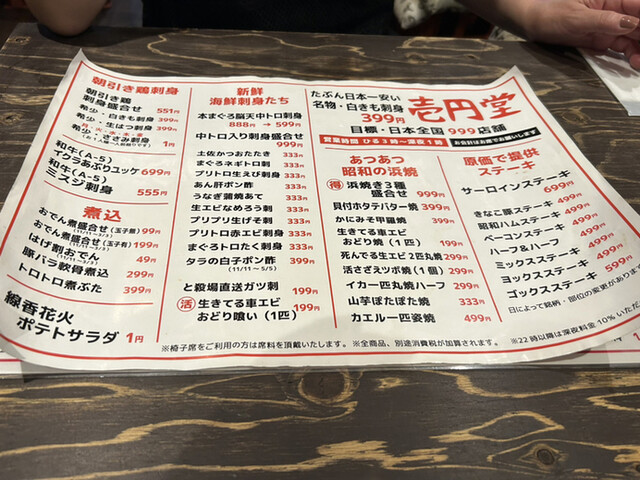 朝引き鶏刺身
朝引き鶏
刺身盛合せ 551円
希少・白きも刺身 399円
希少・生はつ刺身 399円
希少・ささみ刺身 1円
和牛(A-5)
イクラあぶりユッケ 699円
和牛(A-5)
ミスジ刺身 555円
煮込
おでん煮盛合せ(玉子無) 99円
(11/11〜3/3)
おでん煮盛合せ(玉子有) 199円
(11/11〜3/3)
はげ割おでん 49円
豚バラ軟骨煮込 299円
トロトロ煮ぶた 399円
線香花火
ポテトサラダ 1円
新鮮
海鮮刺身たち
本まぐろ脳天中トロ刺身
888円 → 599円
中トロ入り刺身盛合せ
999円
土佐かつおたたき 333円
まぐろネギトロ刺 333円
プリトロ生えび刺身 333円
あん肝ポン酢 333円
うなぎ蒲焼あて 333円
生エビなめろう刺 333円
プリプリ生げそ刺 333円
プリトロ赤エビ刺身 333円
まぐろトロたく刺身 333円
タラの白子ポン酢 399円
(11/11〜5/5)
と殺場直送ガツ刺 199円
活 生きてる車エビ 199円
おどり喰い(1匹)
たぶん日本一安い
名物・白きも刺身
399円
壱円堂
目標・日本全国999店舗
営業時間 ひる3時〜深夜1時
お会計はお席でお願いします
あつあつ
昭和の浜焼
得 浜焼き3種
盛合せ 999円
貝付ホタテバター焼 399円
かにみそ甲羅焼 399円
生きてる車エビ
おどり焼(1匹) 199円
死んでる生エビ2匹丸焼 299円
活さざえツボ焼(1個) 299円
イカ一匹丸焼ハーフ 299円
山芋ぽたぽた焼 333円
カエル一匹姿焼 499円
原価で提供
ステーキ
サーロインステーキ
699円
きなこ豚ステーキ 499円
昭和ハムステーキ 499円
ベーコンステーキ 499円
ハーフ&ハーフ 499円
ミックスステーキ 499円
ヨックスステーキ 499円
ゴックスステーキ 599円
日によって銘柄・部位の変更があり
※椅子席をご利用の方は席料を頂戴いたします。 ※全商品、別途消費税が加算されます。 ※22時以降は深夜料金10%いただ